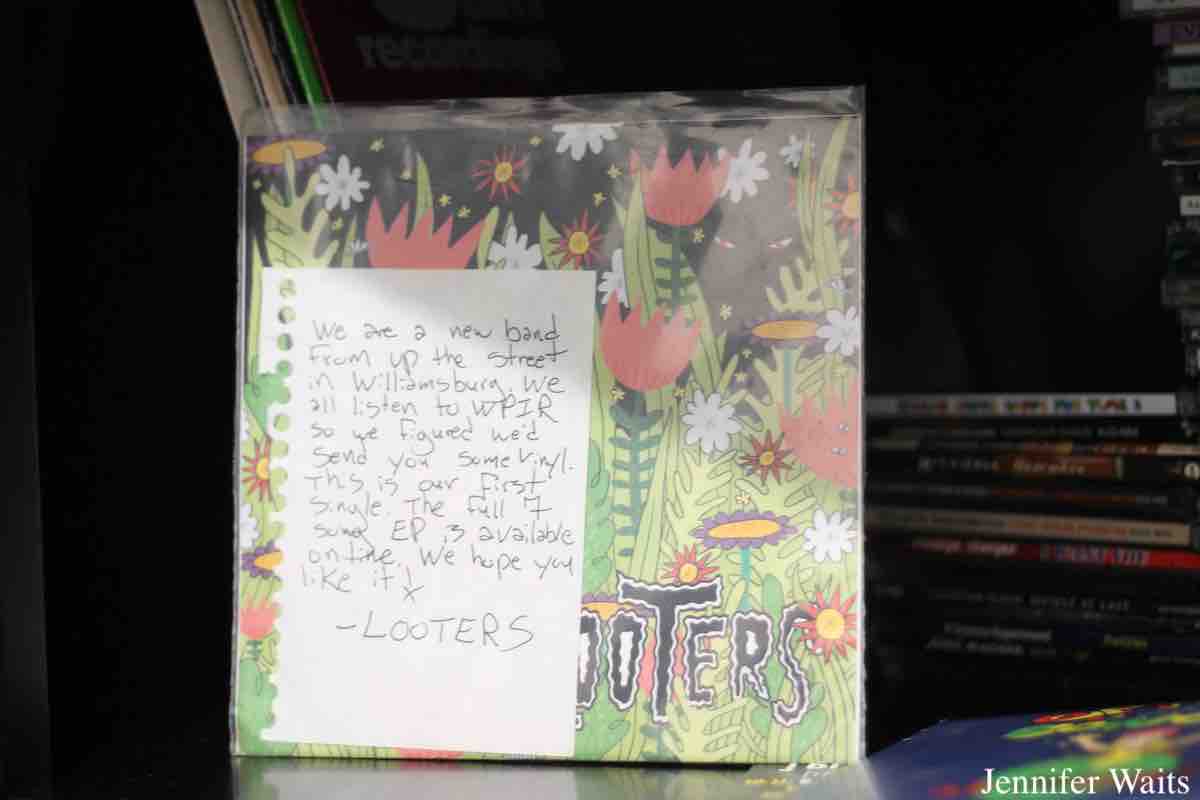 recordings
We are a new band
from up the street
in Williamsburg. We
all listen to WPIR
so we figured we'd
send you some vinyl.
This is our first
single. The full 7
song EP is available
online. We hope you
like it!
-LOOTERS
OOTERS
Jennifer Waits